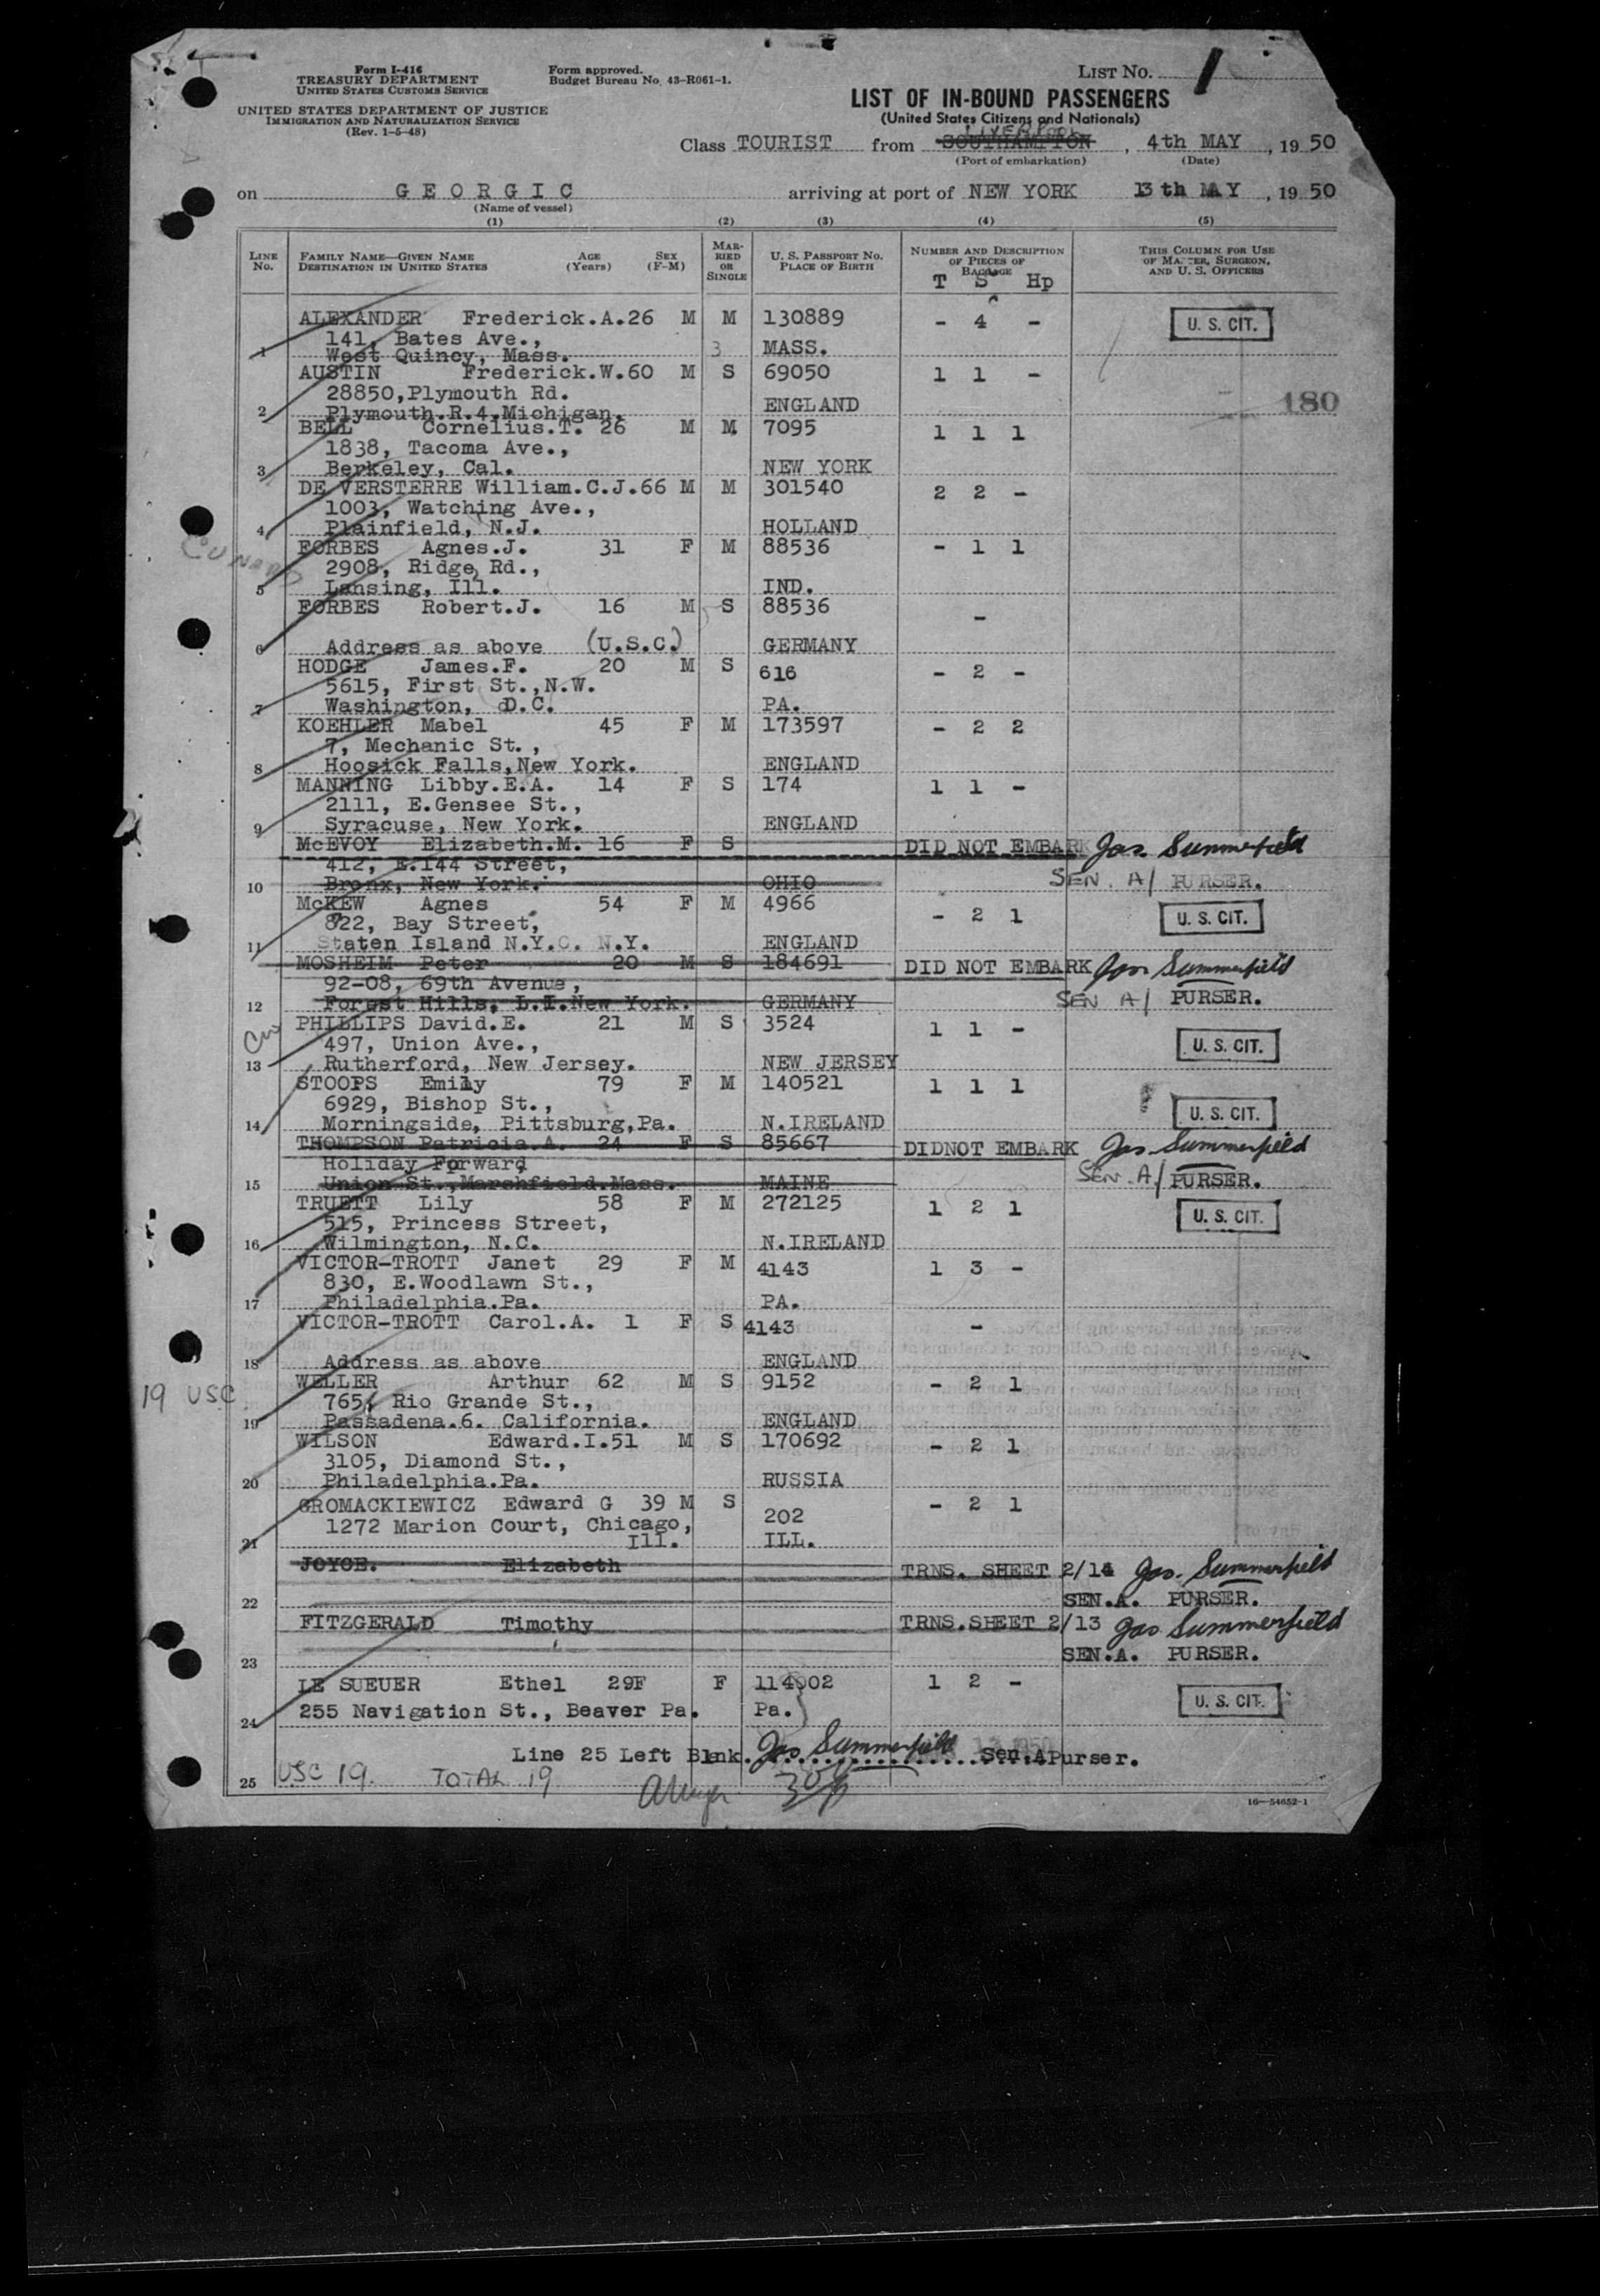 Form I-416
TREASURY DEPARTMENT
UNITED STATES CUSTOMS SERVICE
UNITED STATES DEPARTMENT OF JUSTICE
IMMIGRATION AND NATURALIZATION SERVICE
(Rev. 1-5-48)
Form approved.
Budget Bureau No. 43-R061-1.
LIST NO. 1
LIST OF IN-BOUND PASSENGERS
(United States Citizens and Nationals)
LIVERPOOL
Class TOURIST from SOUTHAMPTON, 4th MAY, 1950
(Port of embarkation) (Date)
on GEORGIC arriving at port of NEW YORK 13th MAY, 1950
(Name of vessel)
(1) (2) (3) (4) (5)
LINE No. FAMILY NAME—GIVEN NAME DESTINATION IN UNITED STATES AGE (Years) SEX (F-M) MARRIED OR SINGLE U. S. PASSPORT NO. PLACE OF BIRTH NUMBER AND DESCRIPTION OF PIECES OF BAGGAGE THIS COLUMN FOR USE OF MASTER, SURGEON, AND U. S. OFFICERS
T S Hp
ALEXANDER Frederick.A.26 M M 130889 - 4 - U. S. CIT.
141, Bates Ave.,
1 West Quincy, Mass. 3 MASS.
AUSTIN Frederick.W.60 M S 69050 1 1 -
28850,Plymouth Rd.
2 Plymouth.R.4.Michigan. ENGLAND 180
BELL Cornelius.T. 26 M M 7095 1 1 1
1838, Tacoma Ave.,
3 Berkeley, Cal. NEW YORK
DE VERSTERRE William.C.J.66 M M 301540 2 2 -
1003, Watching Ave.,
4 Plainfield, N.J. HOLLAND
CUNARD
FORBES Agnes.J. 31 F M 88536 - 1 1
2908, Ridge Rd.,
5 Lansing, Ill. IND.
FORBES Robert.J. 16 M S 88536 -
6 Address as above (U.S.C.) GERMANY
HODGE James.F. 20 M S 616 - 2 -
5615, First St.,N.W.
7 Washington, D.C. PA.
KOEHLER Mabel 45 F M 173597 - 2 2
7, Mechanic St.,
8 Hoosick Falls,New York. ENGLAND
MANNING Libby.E.A. 14 F S 174 1 1 -
2111, E.Gensee St.,
9 Syracuse, New York. ENGLAND
McEVOY Elizabeth.M. 16 F S DID NOT EMBARK Jas. Summerfield
412, E.144 Street,
10 Bronx, New York. OHIO SEN. A/ PURSER.
McKEW Agnes 54 F M 4966 - 2 1 U. S. CIT.
822, Bay Street,
11 Staten Island N.Y.C. N.Y. ENGLAND
MOSHEIM Peter 20 M S 184691 DID NOT EMBARK Jas Summerfield
92-08, 69th Avenue,
12 Forest Hills, L.I.New York. GERMANY SEN A/ PURSER.
PHILLIPS David.E. 21 M S 3524 1 1 - U. S. CIT.
497, Union Ave.,
13 Rutherford, New Jersey. NEW JERSEY
STOOPS Emily 79 F M 140521 1 1 1 U. S. CIT.
6929, Bishop St.,
14 Morningside, Pittsburg,Pa. N.IRELAND
THOMPSON Patricia.A. 24 F S 85667 DIDNOT EMBARK Jas. Summerfield
Holiday Forward
15 Union St.,Marshfield.Mass. MAINE SEN. A/ PURSER.
TRUETT Lily 58 F M 272125 1 2 1 U. S. CIT.
515, Princess Street,
16 Wilmington, N.C. N.IRELAND
VICTOR-TROTT Janet 29 F M 4143 1 3 -
830, E.Woodlawn St.,
17 Philadelphia.Pa. PA.
VICTOR-TROTT Carol.A. 1 F S 4143 -
18 Address as above ENGLAND
19 USC
WELLER Arthur 62 M S 9152 - 2 1
765, Rio Grande St.,
19 Passadena.6. California. ENGLAND
WILSON Edward.I.51 M S 170692 - 2 1
3105, Diamond St.,
20 Philadelphia.Pa. RUSSIA
GROMACKIEWICZ Edward G 39 M S 202 - 2 1
1272 Marion Court, Chicago,
21 Ill. ILL.
JOYCE. Elizabeth TRNS. SHEET 2/14 Jas. Summerfield
22 SEN.A. PURSER.
FITZGERALD Timothy TRNS.SHEET 2/13 Jas Summerfield
23 SEN.A. PURSER.
LE SUEUER Ethel 29F F 114002 1 2 - U. S. CIT.
24 255 Navigation St., Beaver Pa. Pa.
Line 25 Left Blank. Jas Summerfield Sen.A Purser.
25 USC 19. TOTAL 19
16—54652-1